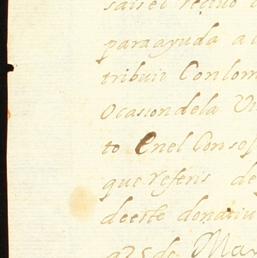 paraayuda a l
tribuir Conlom
Ocasiondela Vi
to Enel Consej
que refieris de
deeste donativ
a 25 de Mar